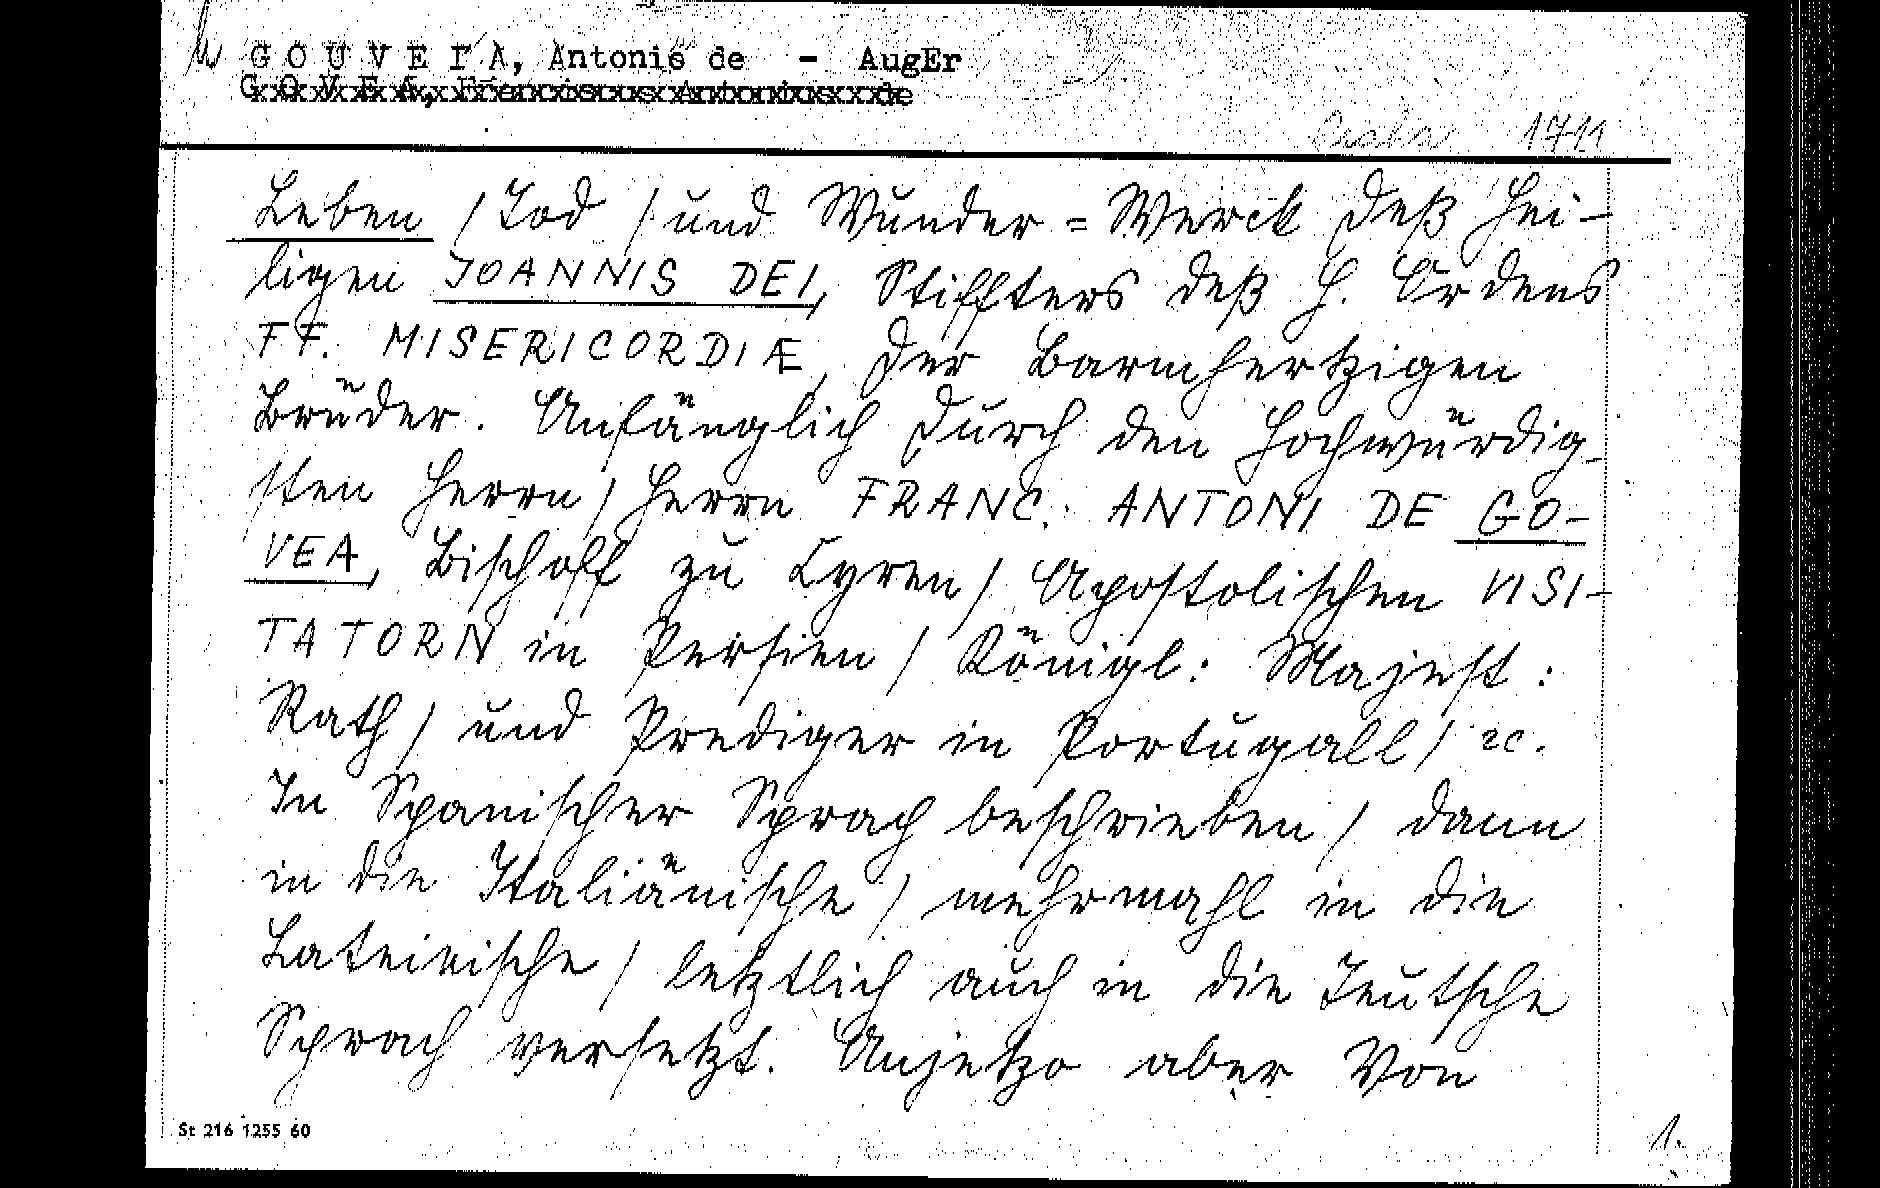 G O U V E I A, Antonió de - AugEr
G O V E A, Franciscus Antonius de
1711
Leben / Tod / und Wunder=Werck deß Hei-
ligen JOANNIS DEI, Stiffters deß H. Ordens
FF. MISERICORDIÆ, der Barmhertzigen
Brüder. Anfänglich durch den Hochwürdig-
sten Herrn / Herrn FRANC. ANTONI DE GO-
VEA, Bischoff zu Cyren / Apostolischen VISI-
TATORN in Persien / Königl: Majest:
Rath / und Prediger in Portugall / ꝛc.
In Spanischer Sprach beschrieben / dann
in die Italiänische / mehrmahl in die
Lateinische / letztlich auch in die Teutsche
Sprach versetzt. Anjetzo aber Von
St 216 1255 60
1.